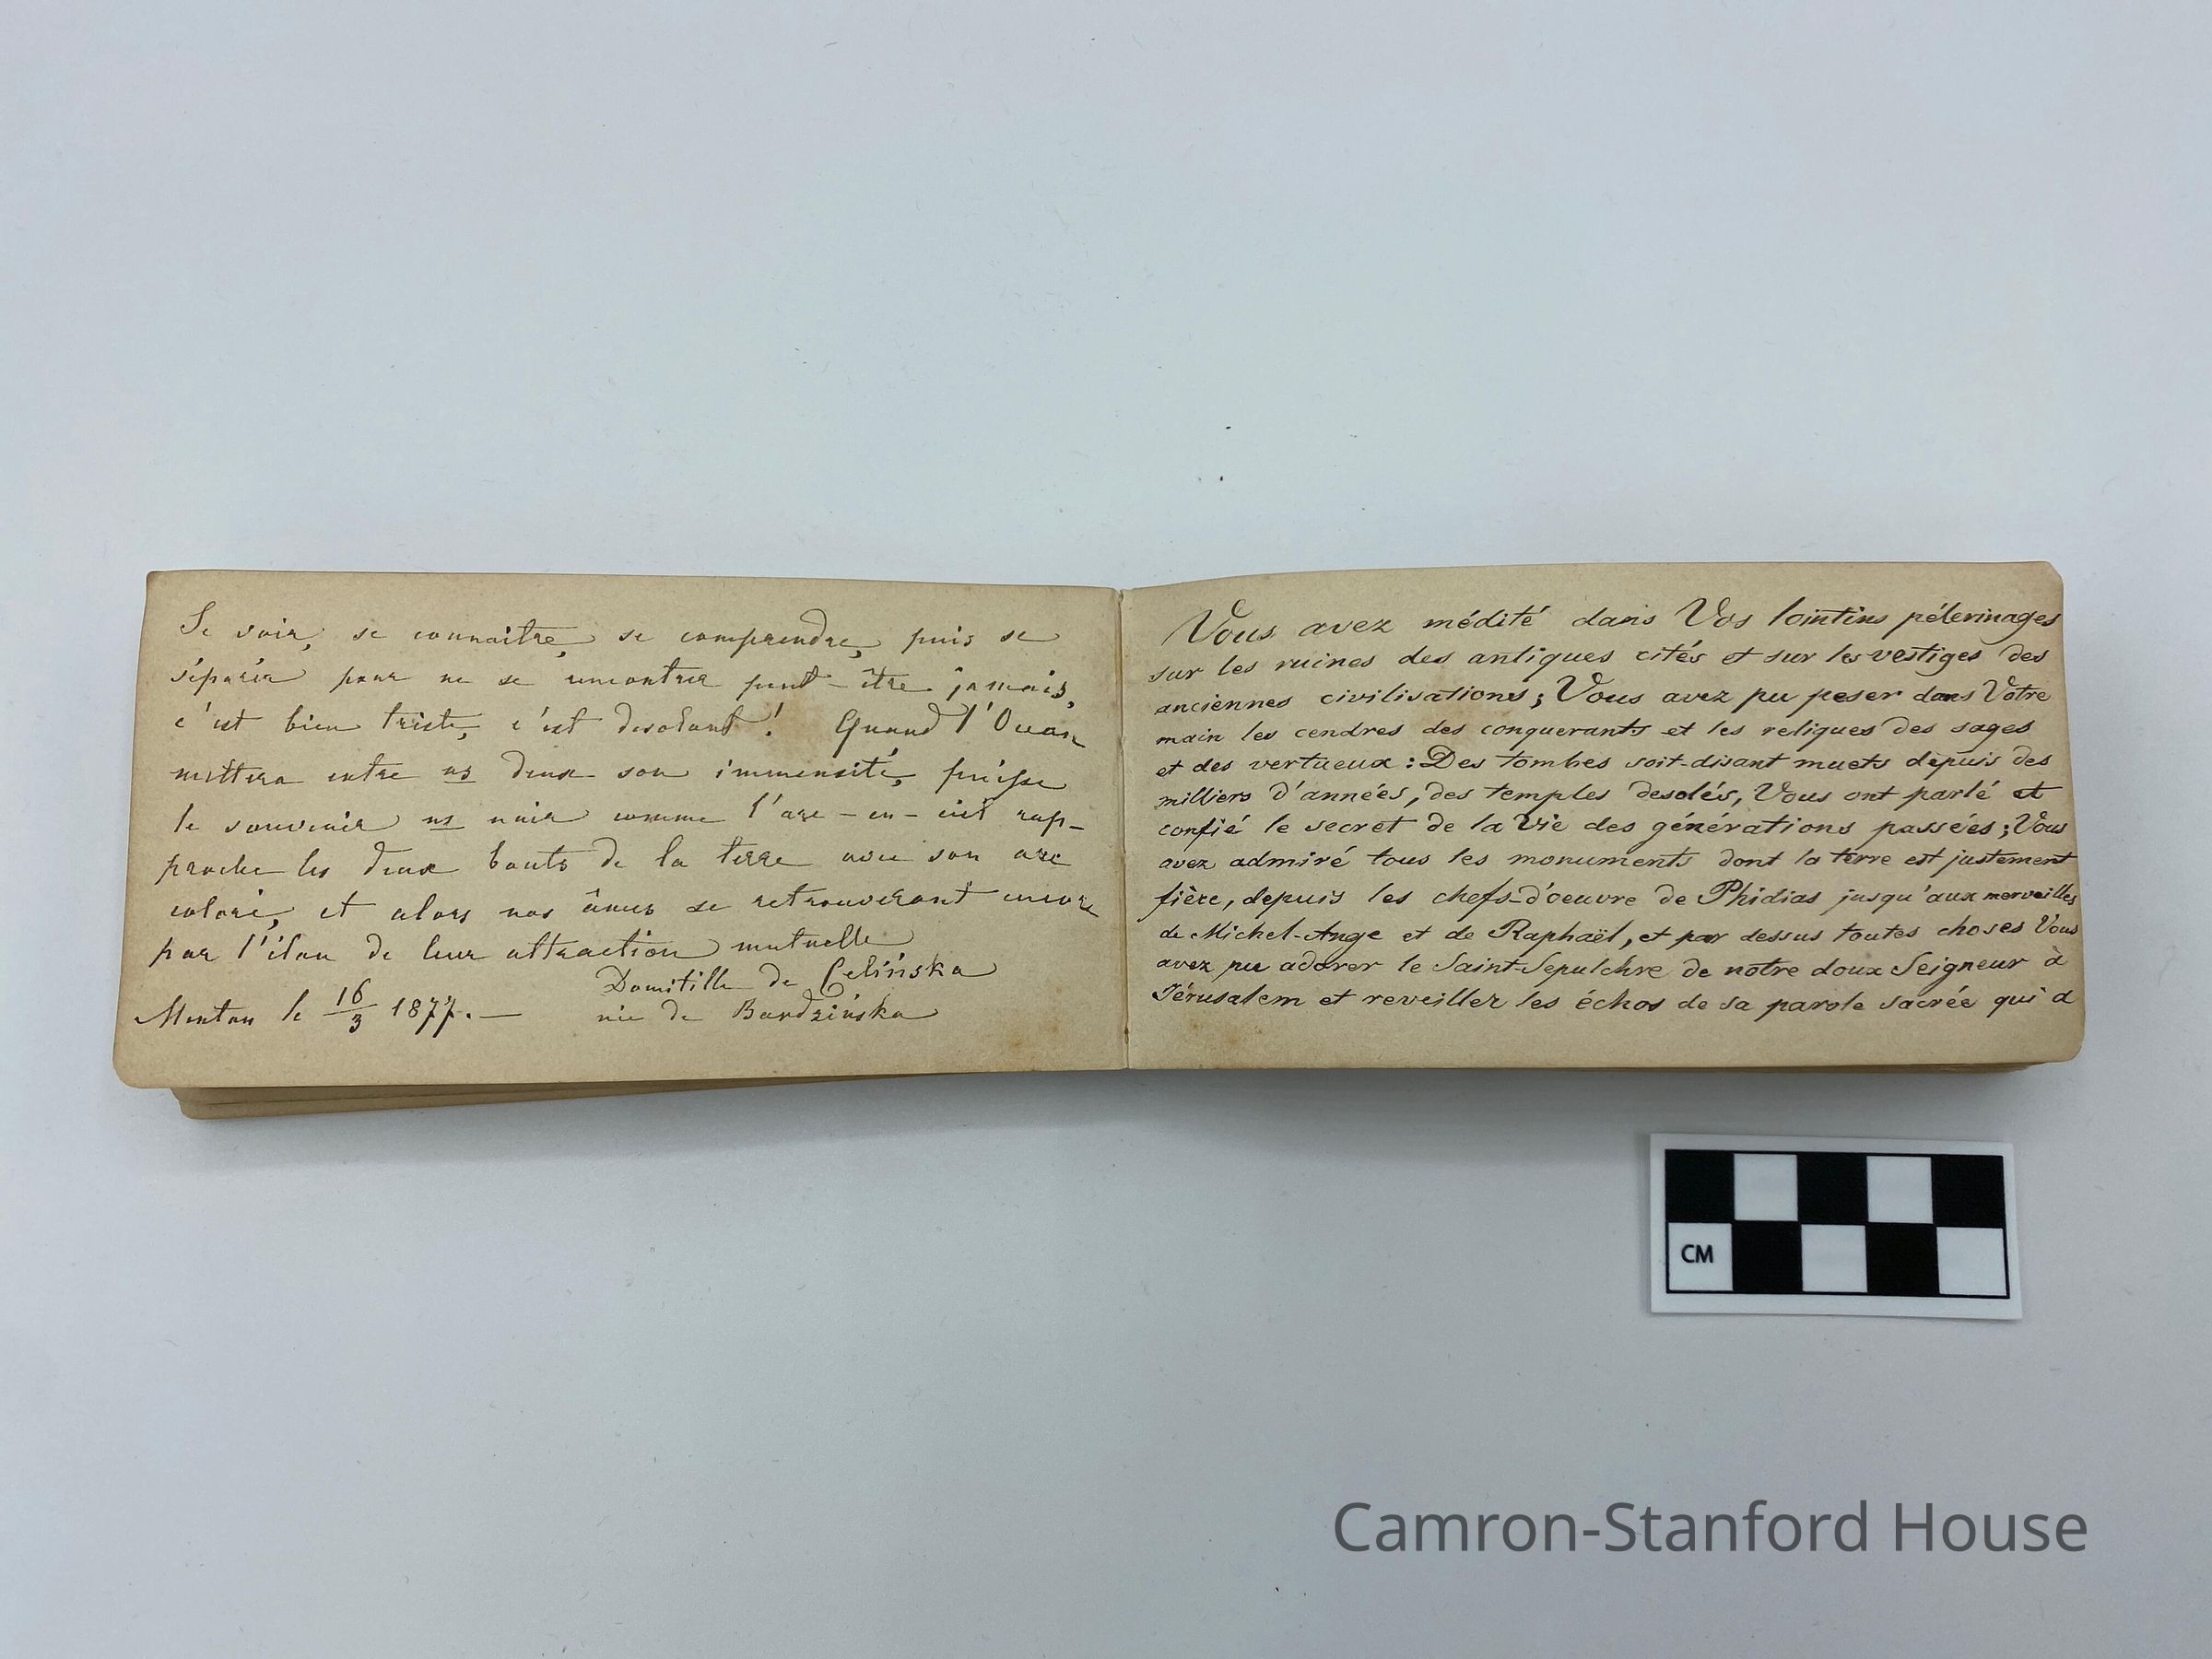 Se voir, se connaître, se comprendre, puis se
séparer pour ne se rencontrer peut-être jamais,
c'est bien triste, c'est desolant! Quand l'Ocean
mettera entre ns deux son immensité, puisse
le souvenir ns unir comme l'arc-en-ciel rap-
proche les deux bouts de la terre avec son arc
coloré, et alors nos âmes se retrouveront encore
par l'élan de leur attraction mutuelle
Domitille de Celińska
Menton le 16/3 1877.—
née de Bardzińska
Vous avez médité dans Vos lointins pélerinages
sur les ruines des antiques cités et sur les vestiges des
anciennes civilisations; Vous avez pu peser dans Votre
main les cendres des conquerants et les reliques des sages
et des vertueux: Des tombes soit-disant muets depuis des
milliers d'années, des temples desolés, Vous ont parlé et
confié le secret de la Vie des générations passées; Vous
avez admiré tous les monuments dont la terre est justement
fière, depuis les chefs-d'oeuvre de Phidias jusqu'aux merveilles
de Michel-Ange et de Raphaël, et par dessus toutes choses Vous
avez pu adorer le Saint-Sepulchre de notre doux Seigneur à
Jérusalem et reveiller les échos de sa parole sacrée qui a
CM
Camron-Stanford House